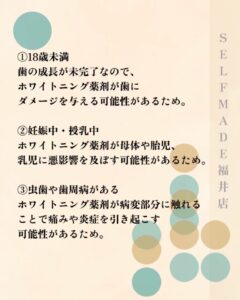 ①18歳未満
歯の成長が未完了なので、
ホワイトニング薬剤が歯に
ダメージを与える可能性があるため。
②妊娠中・授乳中
ホワイトニング薬剤が母体や胎児、
乳児に悪影響を及ぼす可能性があるため。
③虫歯や歯周病がある
ホワイトニング薬剤が病変部分に触れる
ことで痛みや炎症を引き起こす
可能性があるため。
SELFMADE福井店